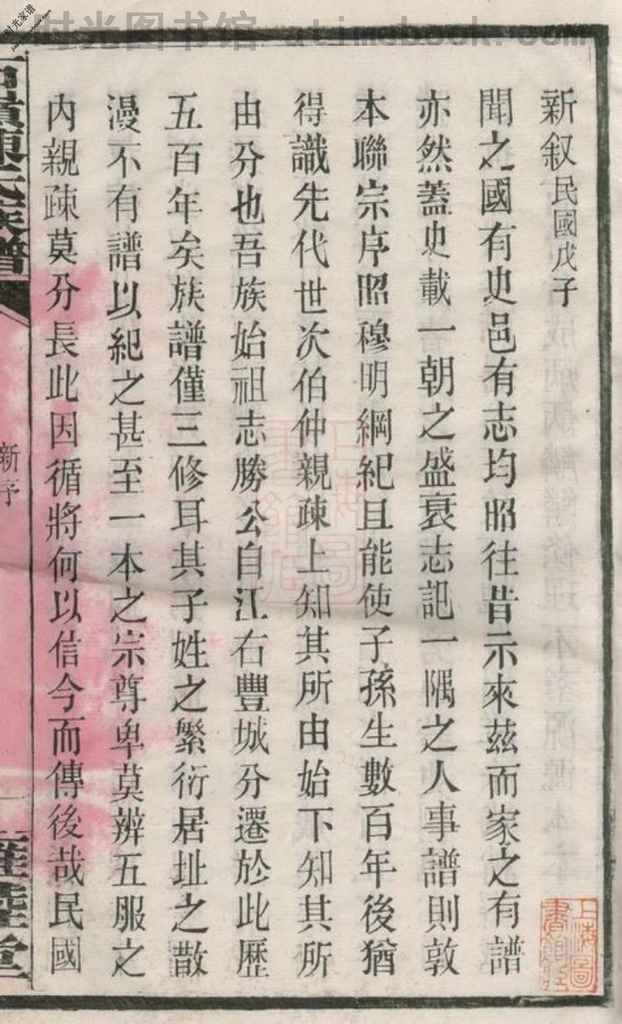 时光图书馆 atimebook.com
时光家谱
新叙民國戊子
聞之國有史邑有志均昭往昔示來茲而家之有譜
亦然蓋史載一朝之盛衰志記一隅之人事譜則敦
本聯宗序昭穆明綱紀且能使子孫生數百年後猶
得識先代世次伯仲親疎上知其所由始下知其所
由分也吾族始祖志勝公自江右豐城分遷於此歷
五百年矣族譜僅三修耳其子姓之繁衍居址之散
漫不有譜以紀之甚至一本之宗尊卑莫辨五服之
內親疎莫分長此因循將何以信今而傳後哉民國
陳氏族譜
新序
一
堂
上海圖書館藏